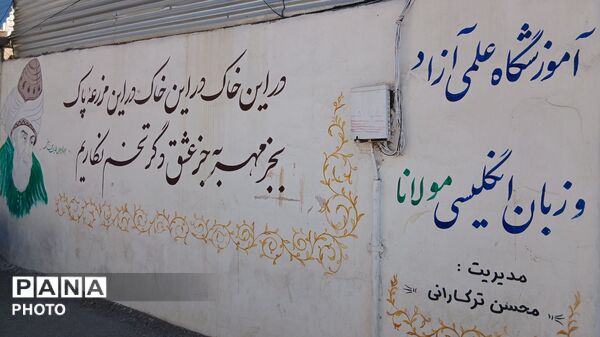 در این خاک در این خاک در این مزرعهٔ پاک
بجز مهر به جز عشق دگر تخم نکاریم
آموزشگاه علمی آزاد
و زبان انگلیسی مولانا
مدیریت :
محسن ترکارانی
PANA
PHOTO